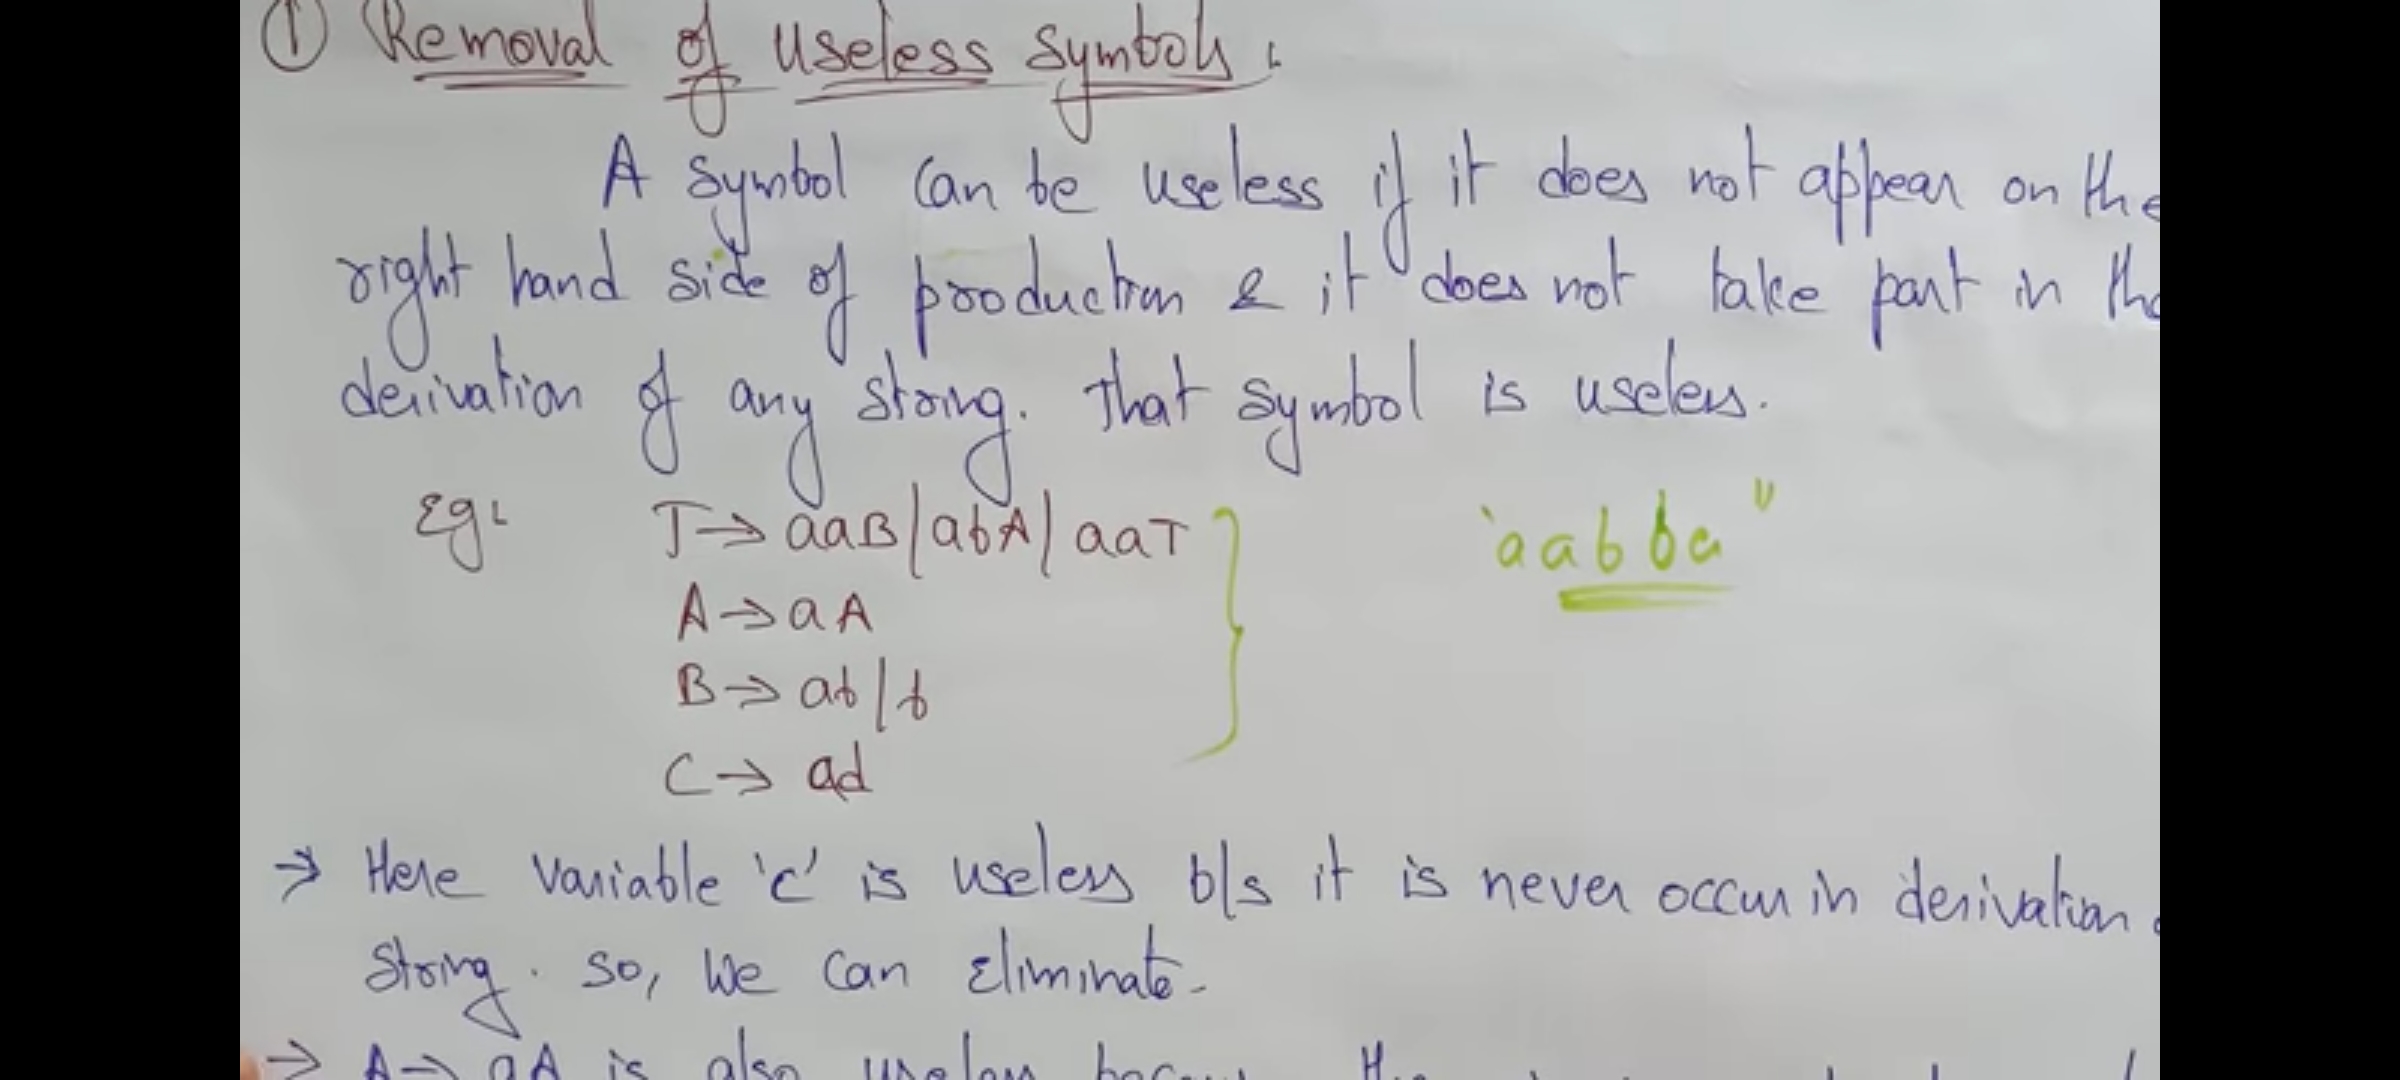 ① Removal of useless symbols:
A symbol can be useless if it does not appear on the
right hand side of production & it does not take part in the
derivation of any string. That symbol is useless.
Eg: T → aaB/abA/aaT "aabba"
A → aA
B → ab/b
C → ad
→ Here variable 'c' is useless b/s it is never occur in derivation
string. so, we can Eliminate.
→ A → aA is also useless